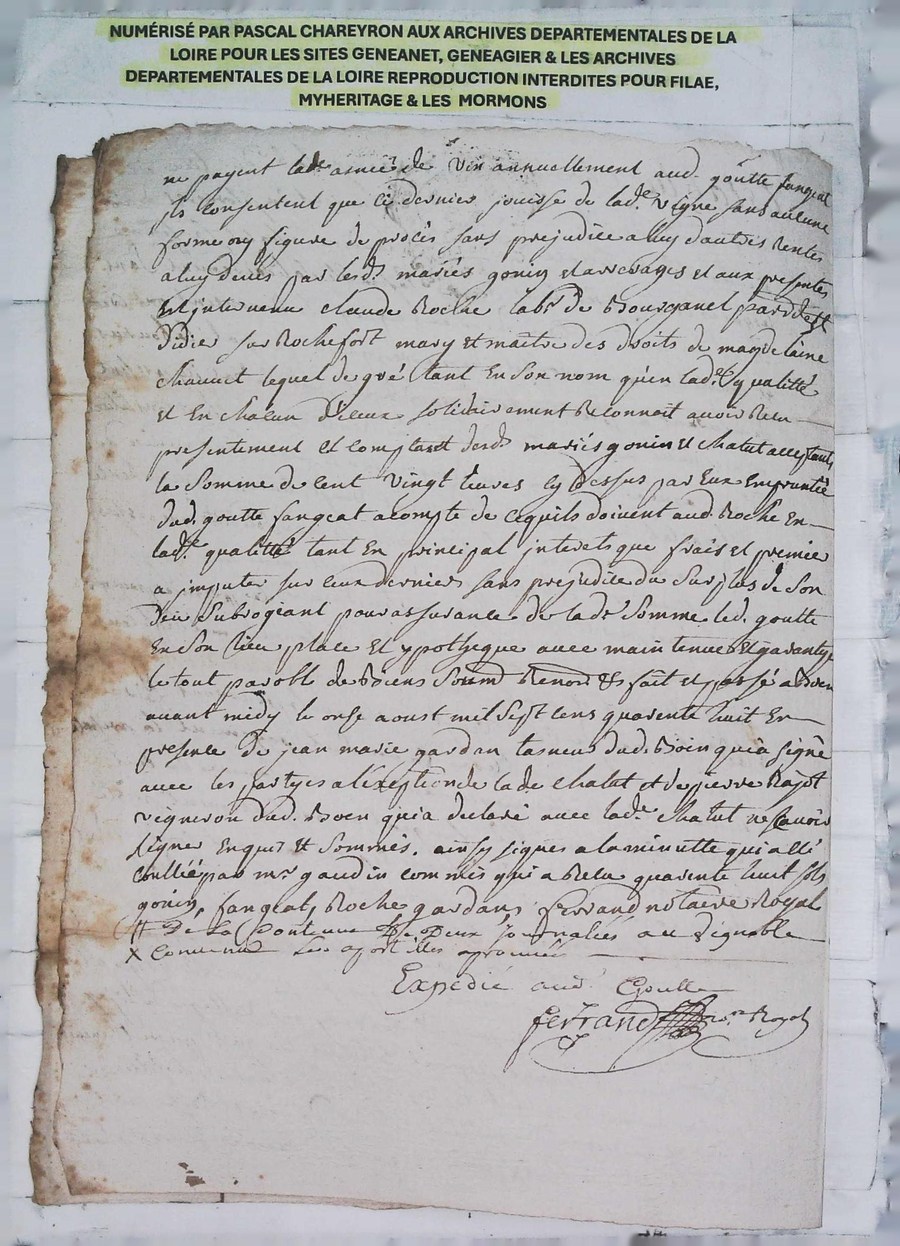 NUMÉRISÉ PAR PASCAL CHAREYRON AUX ARCHIVES DEPARTEMENTALES DE LA
LOIRE POUR LES SITES GENEANET, GENEAGIER & LES ARCHIVES
DEPARTEMENTALES DE LA LOIRE REPRODUCTION INTERDITES POUR FILAE,
MYHERITAGE & LES MORMONS
ne payent lade asnée de vin annuellement aud. goutte fangeat
ils consentent que ce dernier jouisse de lade vigne sans aucune
forme ny figure de procès sans prejudice a luy d'autres rentes
a luy deues par lesds mariés gonin et arrerages et aux presentes
est intervenu claude Roche labr de Bourganel parr de St
Didier sur Rochefort mary et maitre des droits de magdelaine
lequel de gré tant en son nom qu'en lade qualitté
et en chacun d'iceux solidairement Reconnoit avoir Receu
presentement et comptant desds mariés gonin et chatut acceptants
la somme de cent vingt livres cy dessus par eux empruntée
dud. goutte fangeat a compte de ce qu'ils doivent aud. Roche en
lade qualitté tant en principal interets que frais et premier
a imputer sur ceux derniers sans prejudice du surplus de son
deu subrogeant pour assurance de lade somme led. goutte
en son lieu place et ypotheque avec maintenue et garantye
le tout parolle de Biens Soumn Renonn &s fait et passé a Boen
avant midy le onse aoust mil sept cens quarente huit en
presence de jean marie gardan dud. Boin qui a signé
avec les partyes a l'exeption de lade chatut et de pierre Rajot
vigneron dud. Boen qui a declaré avec lade chatut ne scavoir
signer enquis et sommés. ainsy signés a la minutte qui a été
conllée par mr gaudin commis qui a Receu quarente huit sols
gonin, fangeat, Roche gardan, ferrand notaire Royal
# De la Contenue De Deux Journalées au vignoble
X Les apostilles aprouvées
Expedié aud. Goutte
ferrand nore Royal